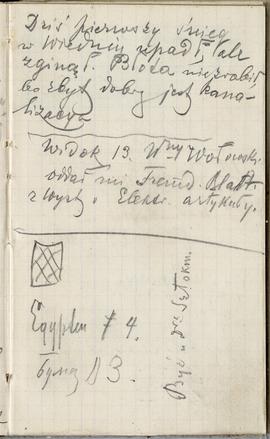 Dziś pierwszy śnieg
w Wiedniu upadł, ale
zginął. Błota nie zrobił
bo zbyt dobry jest kana-
lizacya
Widok 13. Wny Wołowski
oddał mi Fremd. Blatt.
z wyst. Elektr. artykuły.
Egypten 4.
D 3.
Być u Dra